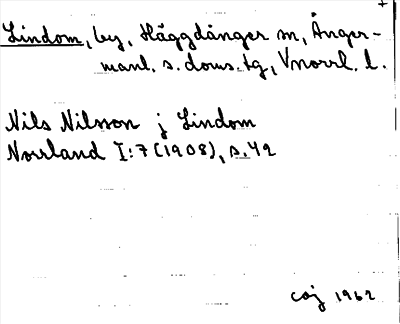 Lindom, by, Häggdånger sn, Ånger-
manl. s. doms. tg, Vnorrl. l.
Nils Nilsson j Lindom
Norrland I:7 (1908), s. 42
caj 1962